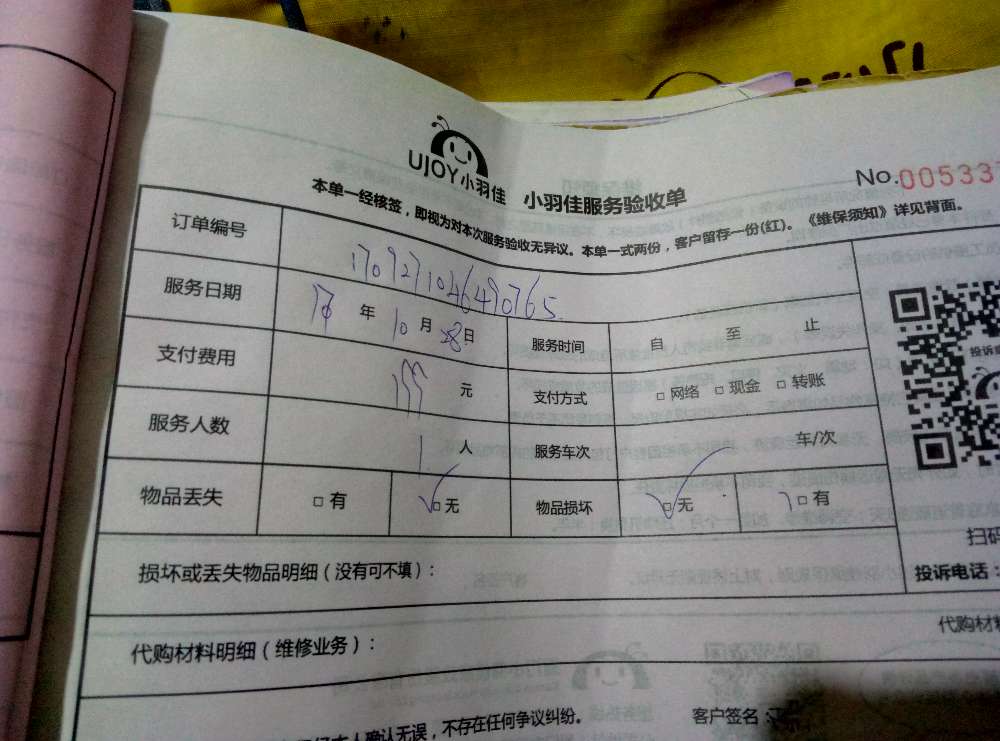 UJOY小羽佳 小羽佳服务验收单
No.00533
本单一经核签，即视为对本次服务验收无异议。本单一式两份，客户留存一份(红)。《维保须知》详见背面。
订单编号 1709271046490765
服务日期 17 年 10 月 28 日 服务时间 自 至 止
支付费用 元 支付方式 □ 网络 □ 现金 □ 转账
服务人数 1 人 服务车次 车/次
物品丢失 □ 有 ✓□ 无 物品损坏 ✓□ 无 □ 有
扫码
投诉电话：
损坏或丢失物品明细（没有可不填）：
代购材料明细（维修业务）： 代购材
本人确认无误，不存在任何争议纠纷。 客户签名：